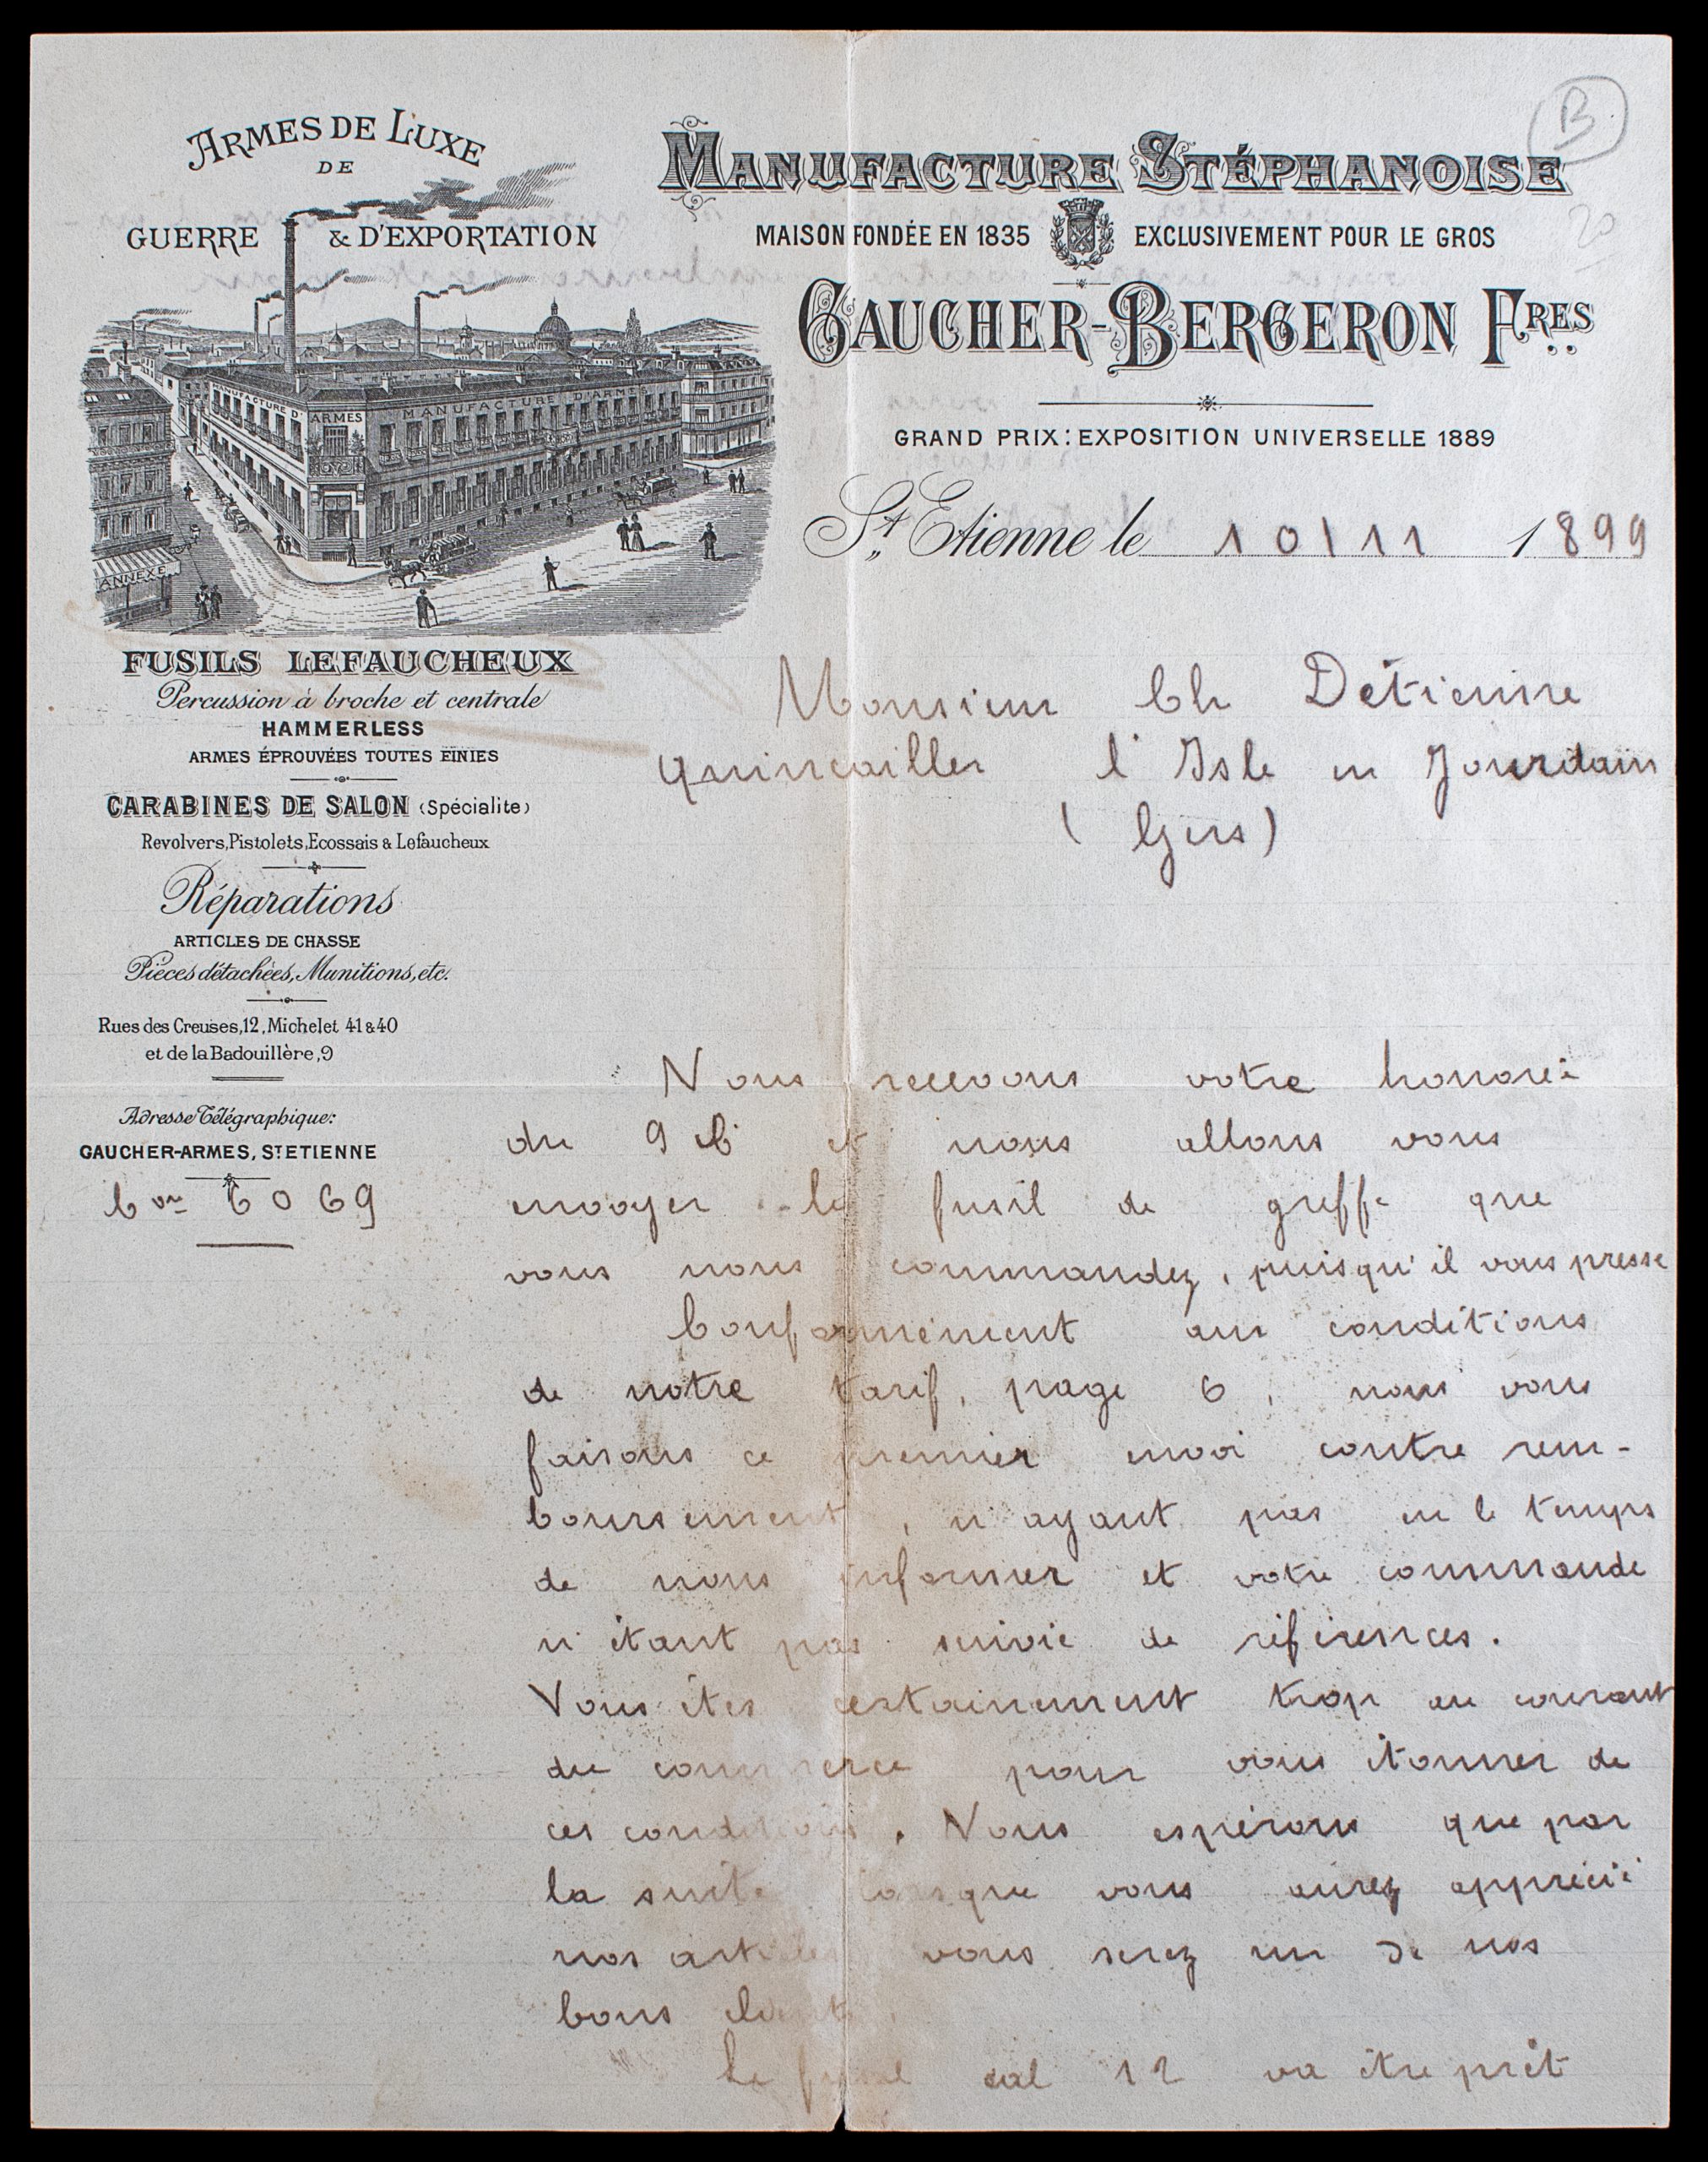 ARMES DE LUXE
DE
GUERRE & D'EXPORTATION
MANUFACTURE D'ARMES MANUFACTURE D'ARMES
ANNEXE
FUSILS LEFAUCHEUX
Percussion à broche et centrale
HAMMERLESS
ARMES ÉPROUVÉES TOUTES FINIES
CARABINES DE SALON (Spécialite)
Revolvers, Pistolets, Ecossais & Lefaucheux
Réparations
ARTICLES DE CHASSE
Pièces détachées, Munitions, etc.
Rues des Creuses, 12, Michelet 41 & 40
et de la Badouillère, 9
Adresse Télégraphique:
GAUCHER-ARMES, ST ETIENNE
6069
B
20
MANUFACTURE STÉPHANOISE
MAISON FONDÉE EN 1835 EXCLUSIVEMENT POUR LE GROS
GAUCHER-BERGERON FRES
GRAND PRIX: EXPOSITION UNIVERSELLE 1889
St Etienne le 10/11 1899
Monsieur Ch Détienne
Quincailler l'Isle en Jourdain
(Gers)
Nous recevons votre honorée
du 9 ct et nous allons vous
envoyer le fusil de greffe que
vous nous commandez, puisqu'il vous presse
Conformément aux conditions
de notre tarif, page 6, nous vous
faisons ce premier envoi contre rem-
boursement, n'ayant pas eu le temps
de nous informer et votre commande
n'étant pas suivie de références.
Vous êtes certainement trop au courant
du commerce pour vous étonner de
ces conditions. Nous espérons que par
la suite lorsque vous aurez apprécié
nos articles vous serez un de nos
bons clients.
Le fusil cal 12 va être prêt